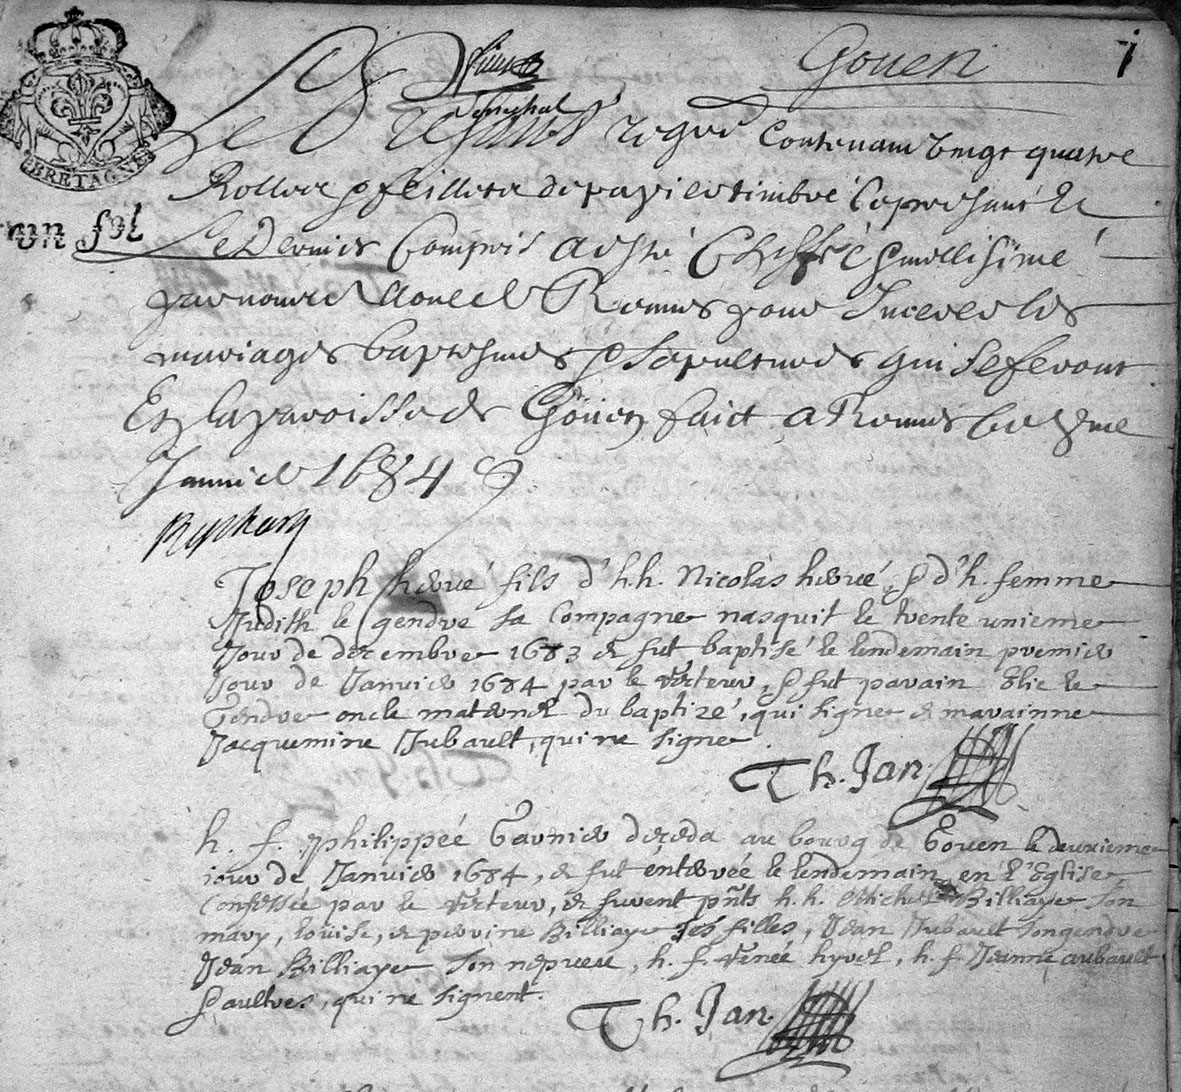 Gouen
1
BRETAGNE
un sol
Le present registre Contenant vingt quatre
Rolles & feilletz de papier timbré Le present Et
Le Dernier Compris a esté Chiffré & millesimé
par nous Rennes pour Incerer les
mariages baptesmes & sepultures qui se feront
En la paroisse de Goüen faict a Rennes le
Janvier 1684
Joseph hervé fils d'h.h. Nicolas hervé, & d'h. femme
Judith le gendre sa Compagne nasquit le trente unieme
Jour de decembre 1683 & fut baptisé le lendemain premier
Jour de Janvier 1684 par le recteur, & fut parain Elie le
Gendre oncle maternel du baptizé, qui signe & marainne
Jacquemine Jubault, qui ne signe.
Th. Jan
h. f. philippée Garnier deceda au bourg de Goven le deuxieme
iour de Janvier 1684, & fut enterrée le lendemain en l'Eglise
Confessée par le recteur, & furent pnts h. h. Michel Billiaye son
mary, Louise, & perrine Billiaye ses filles, Jean Jubault son gendre
Jean Billiaye son nepveu, h. f. renée hyvel, h. f. Jeanne aubault
& aultres, qui ne signent.
Th. Jan